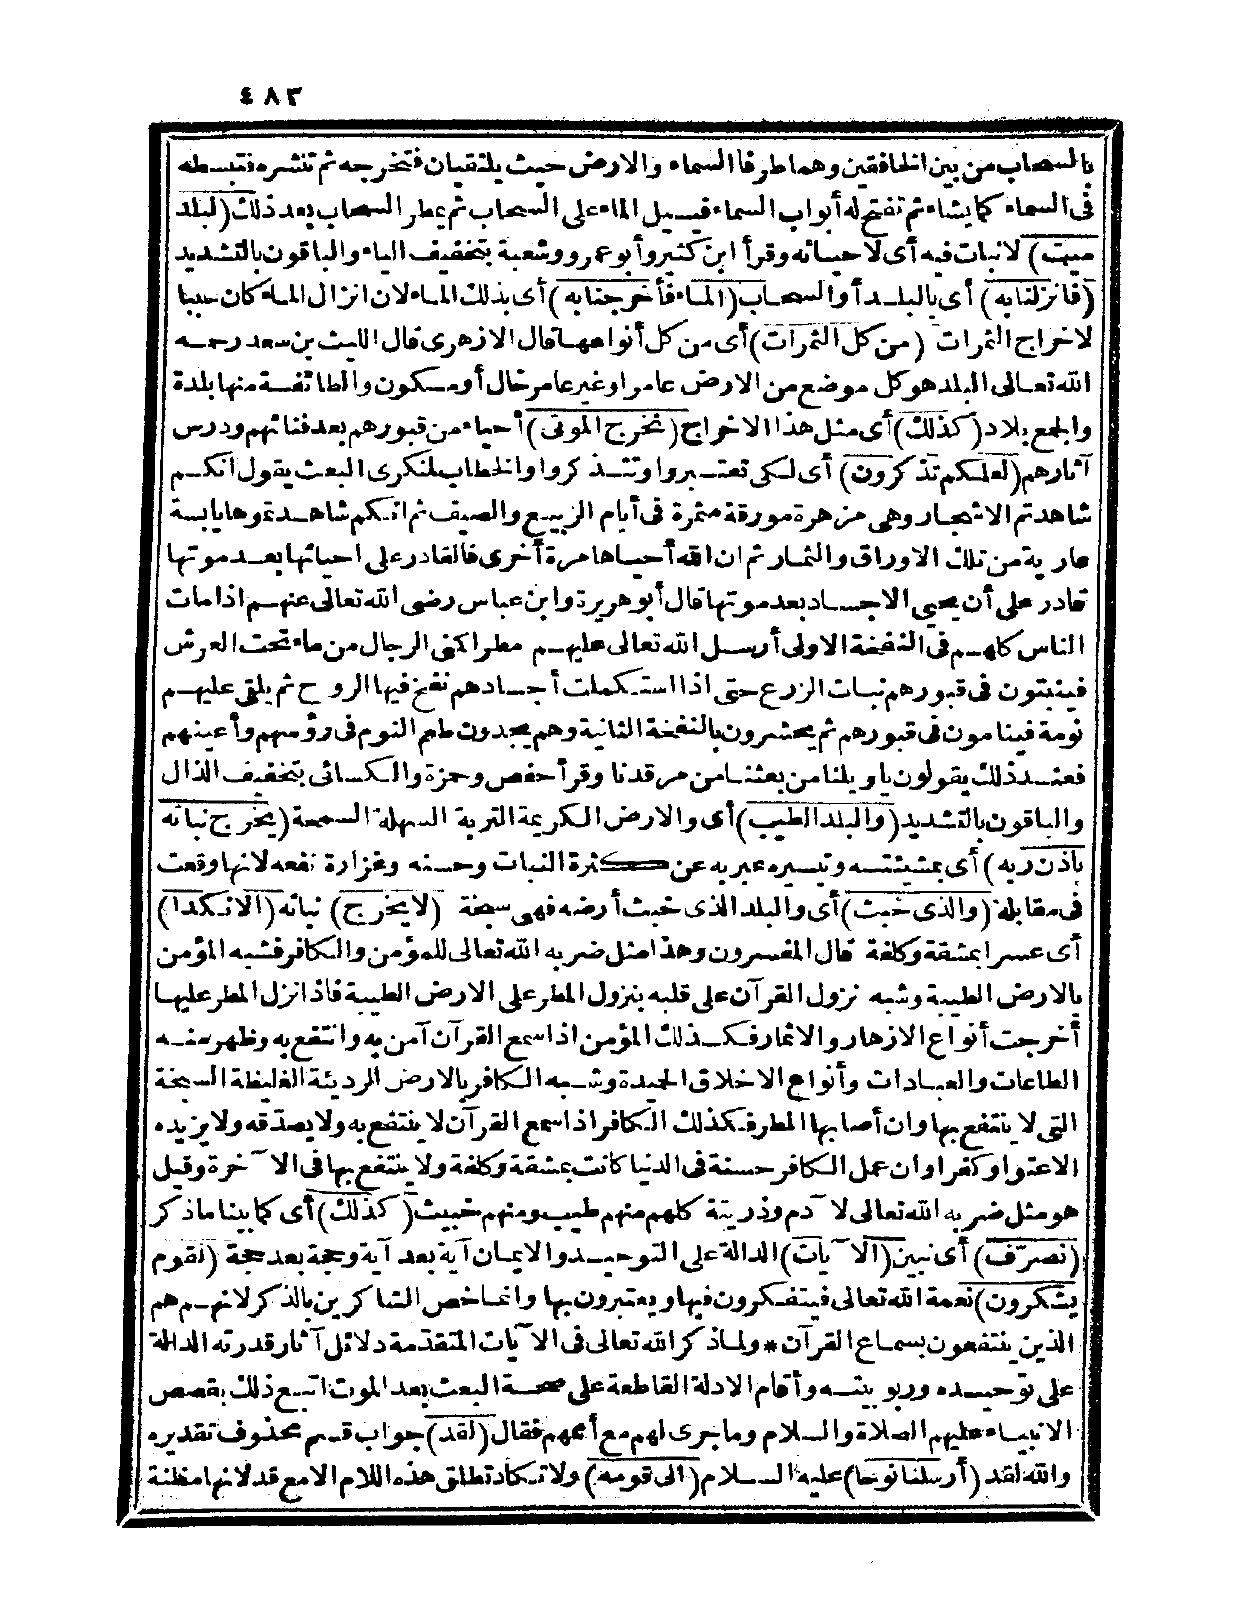 ٤٨٣
بالسحاب من بين الخافقين وهما طرفا السماء والارض حيث يلتقيان فتخرجه ثم تنشره فتبسطه
فى السماء كما يشاء ثم تفتح له أبواب السماء فيسيل الماء على السحاب ثم يمطر السحاب بعد ذلك (لبلد
ميت) لا نبات فيه أى لاحيائه وقرأ ابن كثير وأبو عمرو وشعبة بتخفيف الياء والباقون بالتشديد
(فانزلنا به) أى بالبلد أو السحاب (الماء فأخرجنا به) أى بذلك الماء لان انزال الماء كان سببا
لاخراج الثمرات (من كل الثمرات) أى من كل أنواعها قال الازهرى قال الليث بن سعد رحمه
الله تعالى البلد هو كل موضع من الارض عامر او غير عامر خال أو مسكون والطائفة منها بلدة
والجمع بلاد (كذلك) أى مثل هذا الاخراج (نخرج الموتى) أحياء من قبورهم بعد فنائهم ودرس
آثارهم (لعلكم تذكرون) أى لكى تعتبروا وتتذكروا والخطاب لمنكرى البعث يقول انكم
شاهدتم الاشجار وهى مزهرة مورقة مثمرة فى أيام الربيع والصيف ثم انكم شاهدتموها يابسة
عارية من تلك الاوراق والثمار ثم ان الله أحياها مرة أخرى فالقادر على احيائها بعد موتها
قادر على أن يحيى الاجساد بعد موتها قال أبو هريرة وابن عباس رضى الله تعالى عنهم اذا مات
الناس كلهم فى النفخة الاولى أرسل الله تعالى عليهم مطرا كمنى الرجال من ماء تحت العرش
فينبتون فى قبورهم نبات الزرع حتى اذا استكملت أجسادهم نفخ فيها الروح ثم يلقى عليهم
نومة فينامون فى قبورهم ثم يحشرون بالنفخة الثانية وهم يجدون طعم النوم فى رؤسهم وأعينهم
فعند ذلك يقولون ياويلنا من بعثنا من مرقدنا وقرأ حفص وحمزة والكسائى بتخفيف الذال
والباقون بالتشديد (والبلد الطيب) أى والارض الكريمة التربة السهلة السمحة (يخرج نباته
باذن ربه) أى بمشيئته وتيسيره عبر به عن كثرة النبات وحسنه وغزارة نفعه لانها وقعت
فى مقابله (والذى خبث) أى والبلد الذى خبث أرضه فهى سبخة (لا يخرج) نباته (الا نكدا)
أى عسرا بمشقة وكلفة قال المفسرون وهذا مثل ضربه الله تعالى للمؤمن والكافر فشبه المؤمن
بالارض الطيبة وشبه نزول القرآن على قلبه بنزول المطر على الارض الطيبة فاذا نزل المطر عليها
أخرجت أنواع الازهار والاثمار فكذلك المؤمن اذا سمع القرآن آمن به وانتفع به وظهر منه
الطاعات والعبادات وأنواع الاخلاق الحميدة وشبه الكافر بالارض الرديئة الغليظة السبخة
التى لا ينتفع بها وان أصابها المطر فكذلك الكافر اذا سمع القرآن لا ينتفع به ولا يصدقه ولا يزيده
الاعتوا وكفرا وان عمل الكافر حسنة فى الدنيا كانت بمشقة وكلفة ولا ينتفع بها فى الآخرة وقيل
هو مثل ضربه الله تعالى لآدم وذريته كلهم منهم طيب ومنهم خبيث (كذلك) أى كما بينا ما ذكر
(نصرّف) أى نبين (الآيات) الدالة على التوحيد والايمان آية بعد آية وحجة بعد حجة (لقوم
يشكرون) نعمة الله تعالى فيتفكرون فيها ويعتبرون بها وانما خص الشاكرين بالذكر لانهم هم
الذين ينتفعون بسماع القرآن * ولما ذكر الله تعالى فى الآيات المتقدّمة دلائل آثار قدرته الدالة
على توحيده وربوبيته وأقام الادلة القاطعة على صحة البعث بعد الموت اتبع ذلك بقصص
الانبياء عليهم الصلاة والسلام وما جرى لهم مع أممهم فقال (لقد) جواب قسم محذوف تقديره
والله لقد (أرسلنا نوحا) عليه السلام (الى قومه) ولا تكاد تطلق هذه اللام الا مع قد لانها مظنة